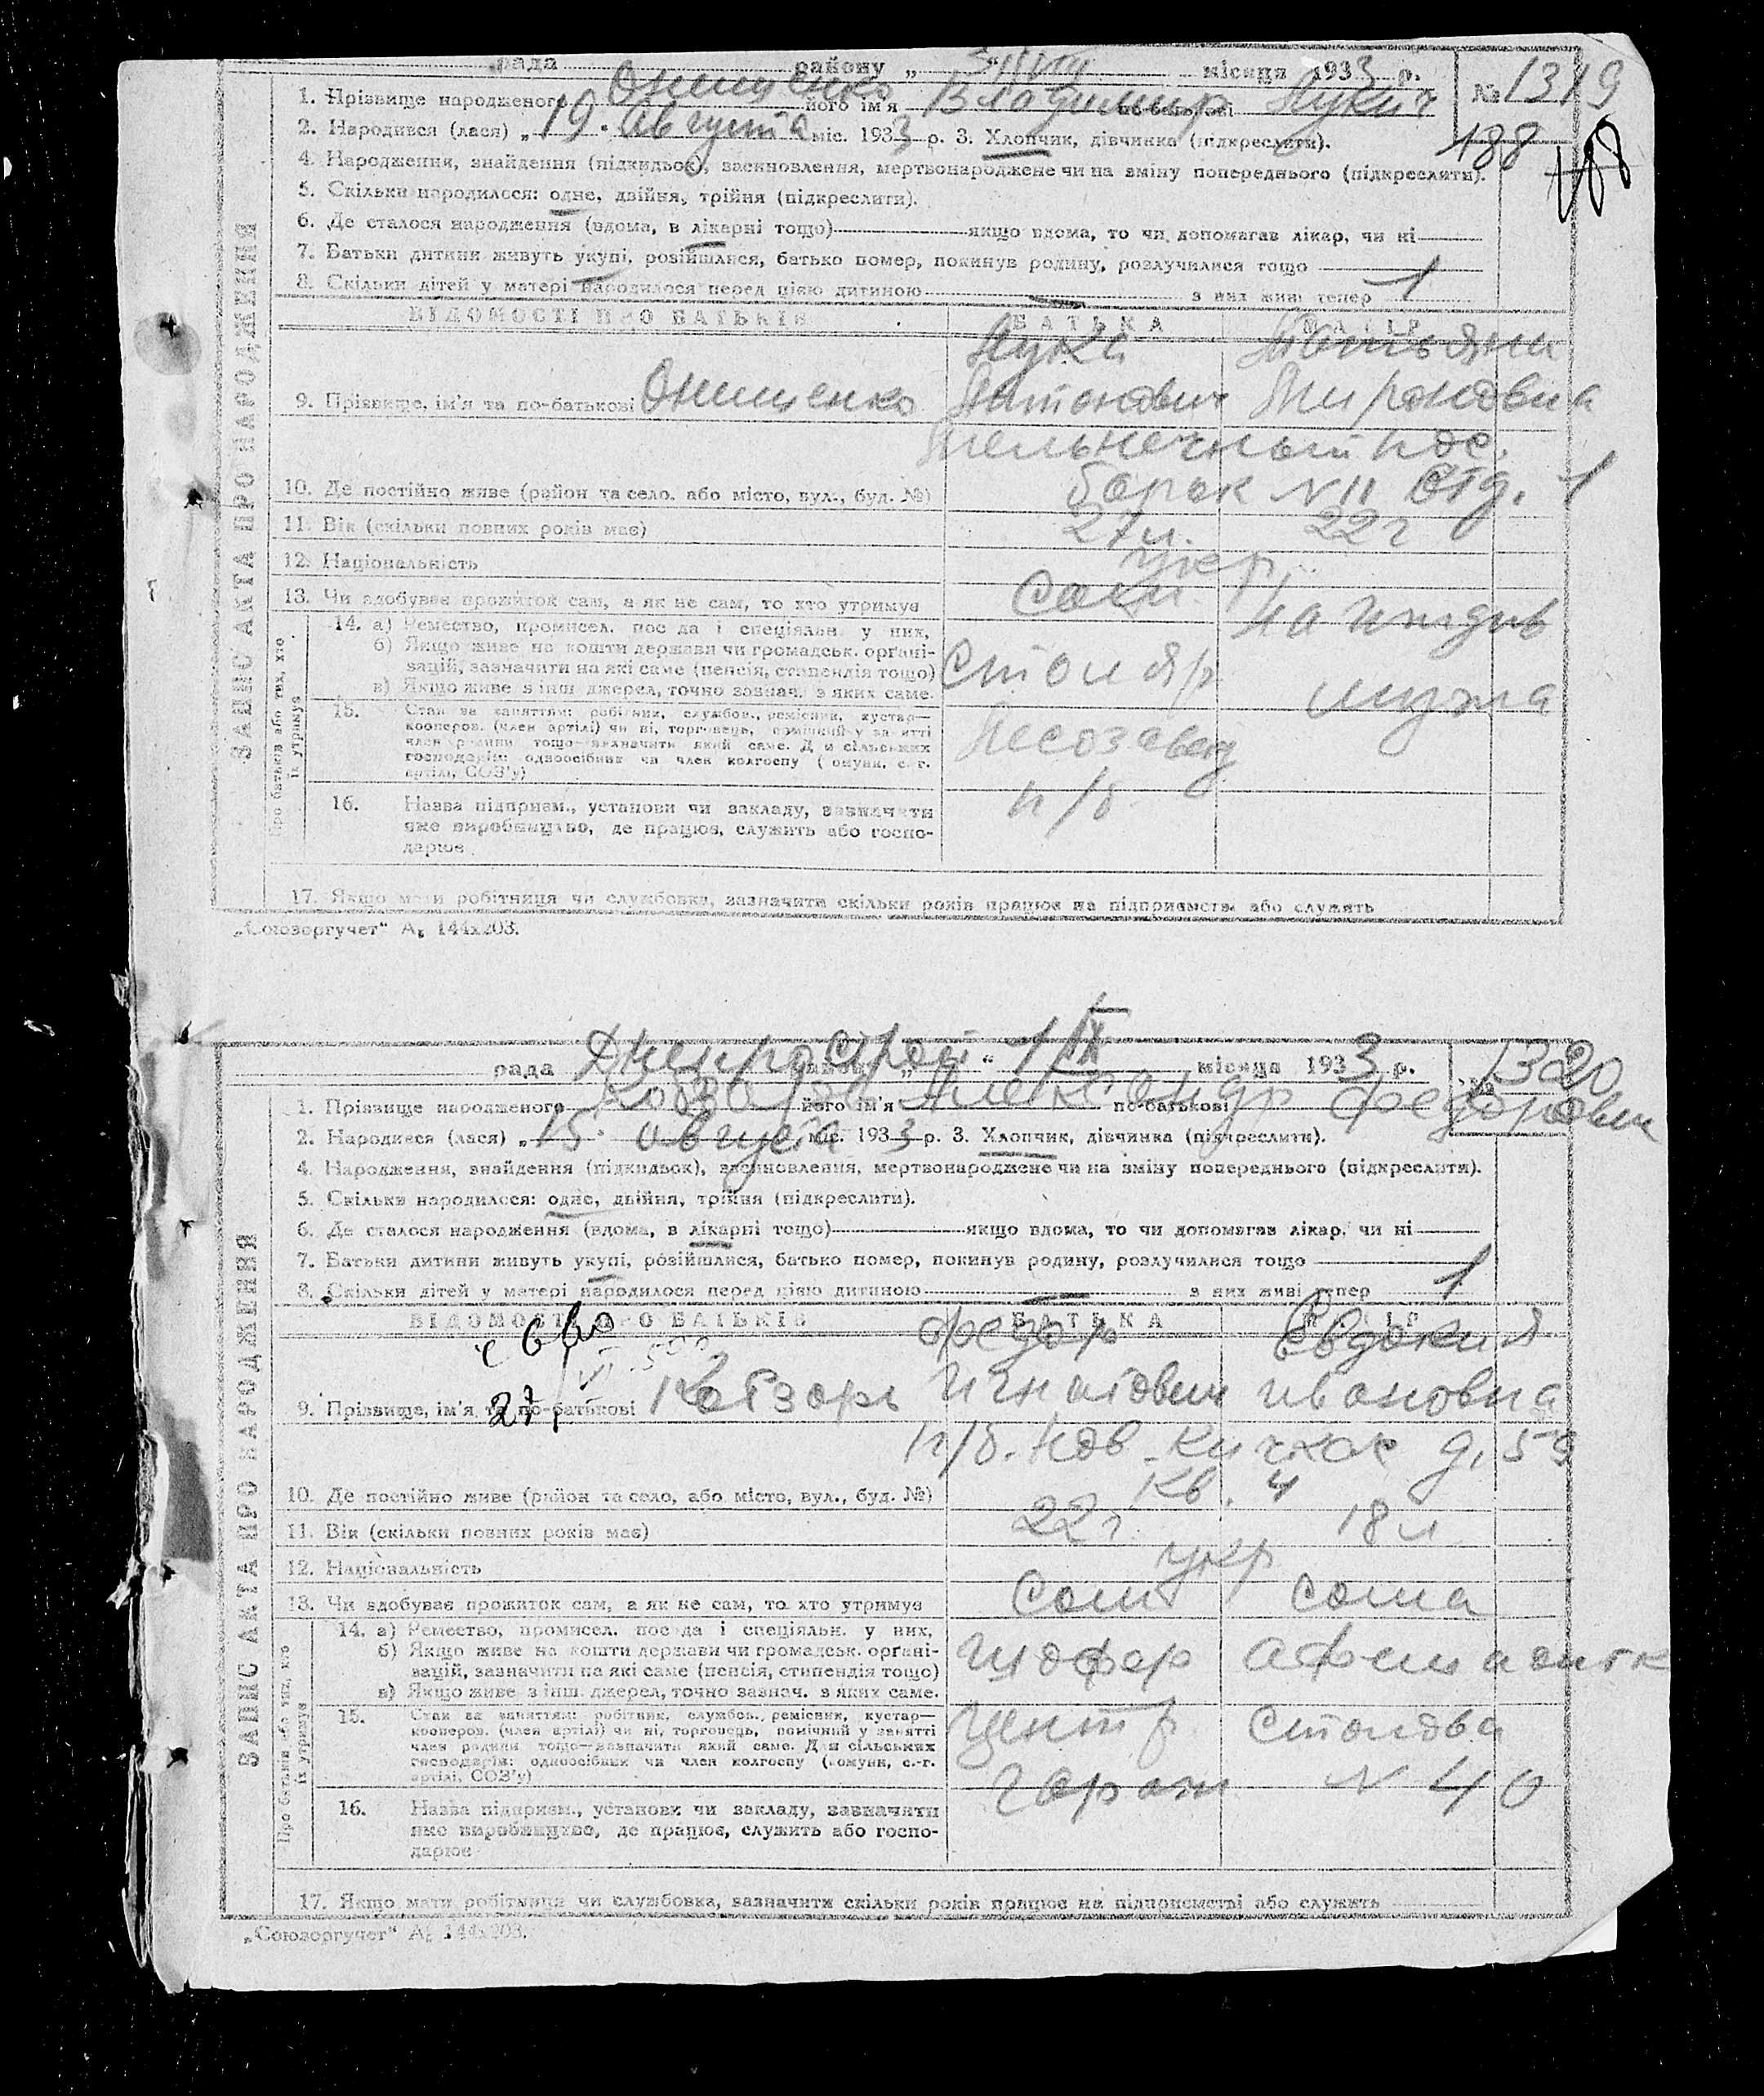 рада району „ " місяця 1933 р.
№ 1319
1. Прізвище народженого Онищенко його ім'я Владимир по-батькові Лукич
2. Народився (лася) „19" Августа міс. 1933 р. 3. Хлопчик, дівчинка (підкреслити).
188
188
4. Народження, знайдення (підкидьок), засиновлення, мертвонароджене чи на зміну попереднього (підкреслити).
5. Скільки народилося: одне, двійня, трійня (підкреслити).
6. Де сталося народження (вдома, в лікарні тощо) якщо вдома, то чи допомагав лікар, чи ні
7. Батьки дитини живуть укупі, розійшлися, батько помер, покинув родину, розлучилися тощо
8. Скільки дітей у матері народилося перед цією дитиною — з них живі тепер 1
ЗАПИС АКТА ПРО НАРОДЖЕННЯ
ВІДОМОСТІ ПРО БАТЬКІВ БАТЬКА МАТІР
Лука Татьяна
9. Прізвище, ім'я та по-батькові Онищенко Антонович Мироновна
пос.
10. Де постійно живе (район та село, або місто, вул., буд. №) барак N 11
11. Вік (скільки повних років має) 27 л. 22 г
12. Національність укр.
13. Чи здобуває прожиток сам, а як не сам, то хто утримує сам на иждив
Про батька або тих, хто їх утримує
14. а) Ремество, промисел, посада і спеціяльн. у них,
б) Якщо живе на кошти держави чи громадськ. органі-
зацій, зазначити на які саме (пенсія, стипендія тощо) столяр
в) Якщо живе з інш. джерел, точно зазнач. з яких саме. мужа
15. Стан за заняттям: робітник, службов., ремісник, кустар—
кооперов. (член артілі) чи ні, торговець, помічний у занятті
член родини тощо—зазначити який саме. Для сільських
господарів: одноосібник чи член колгоспу (комуни, с.-г.
артілі, СОЗ'у)
Лесозавод
п/б
16. Назва підприєм., установи чи закладу, зазначити
яке виробництво, де працює, служить або госпо-
дарює
17. Якщо мати робітниця чи службовка, зазначити скільки років працює на підприємстві або служить
„Союзоргучет" А₅ 144х203.
рада Днепрострой району „1" IX місяця 1933 р.
№ 1320
1. Прізвище народженого його ім'я Александр по-батькові Федорович
2. Народився (лася) „15" августа міс. 1933 р. 3. Хлопчик, дівчинка (підкреслити).
4. Народження, знайдення (підкидьок), засиновлення, мертвонароджене чи на зміну попереднього (підкреслити).
5. Скільки народилося: одне, двійня, трійня (підкреслити).
6. Де сталося народження (вдома, в лікарні тощо) якщо вдома, то чи допомагав лікар, чи ні
7. Батьки дитини живуть укупі, розійшлися, батько помер, покинув родину, розлучилися тощо
8. Скільки дітей у матері народилося перед цією дитиною — з них живі тепер 1
ЗАПИС АКТА ПРО НАРОДЖЕННЯ
ВІДОМОСТІ ПРО БАТЬКІВ БАТЬКА МАТІР
Федор Евдокия
9. Прізвище, ім'я та по-батькові Кобзарь Игнатович Ивановна
п/б. Нов. Кичкас д. 59
10. Де постійно живе (район та село, або місто, вул., буд. №) кв. 4
11. Вік (скільки повних років має) 22 г. 18 л
12. Національність укр
13. Чи здобуває прожиток сам, а як не сам, то хто утримує сам сама
Про батька або тих, хто їх утримує
14. а) Ремество, промисел, посада і спеціяльн. у них,
б) Якщо живе на кошти держави чи громадськ. органі-
зацій, зазначити на які саме (пенсія, стипендія тощо) шофер
в) Якщо живе з інш. джерел, точно зазнач. з яких саме.
15. Стан за заняттям: робітник, службов., ремісник, кустар—
кооперов. (член артілі) чи ні, торговець, помічний у занятті
член родини тощо—зазначити який саме. Для сільських
господарів: одноосібник чи член колгоспу (комуни, с.-г.
артілі, СОЗ'у)
Центр столова
гараж N 40
16. Назва підприєм., установи чи закладу, зазначити
яке виробництво, де працює, служить або госпо-
дарює
17. Якщо мати робітниця чи службовка, зазначити скільки років працює на підприємстві або служить
„Союзоргучет" А₅ 144х203.